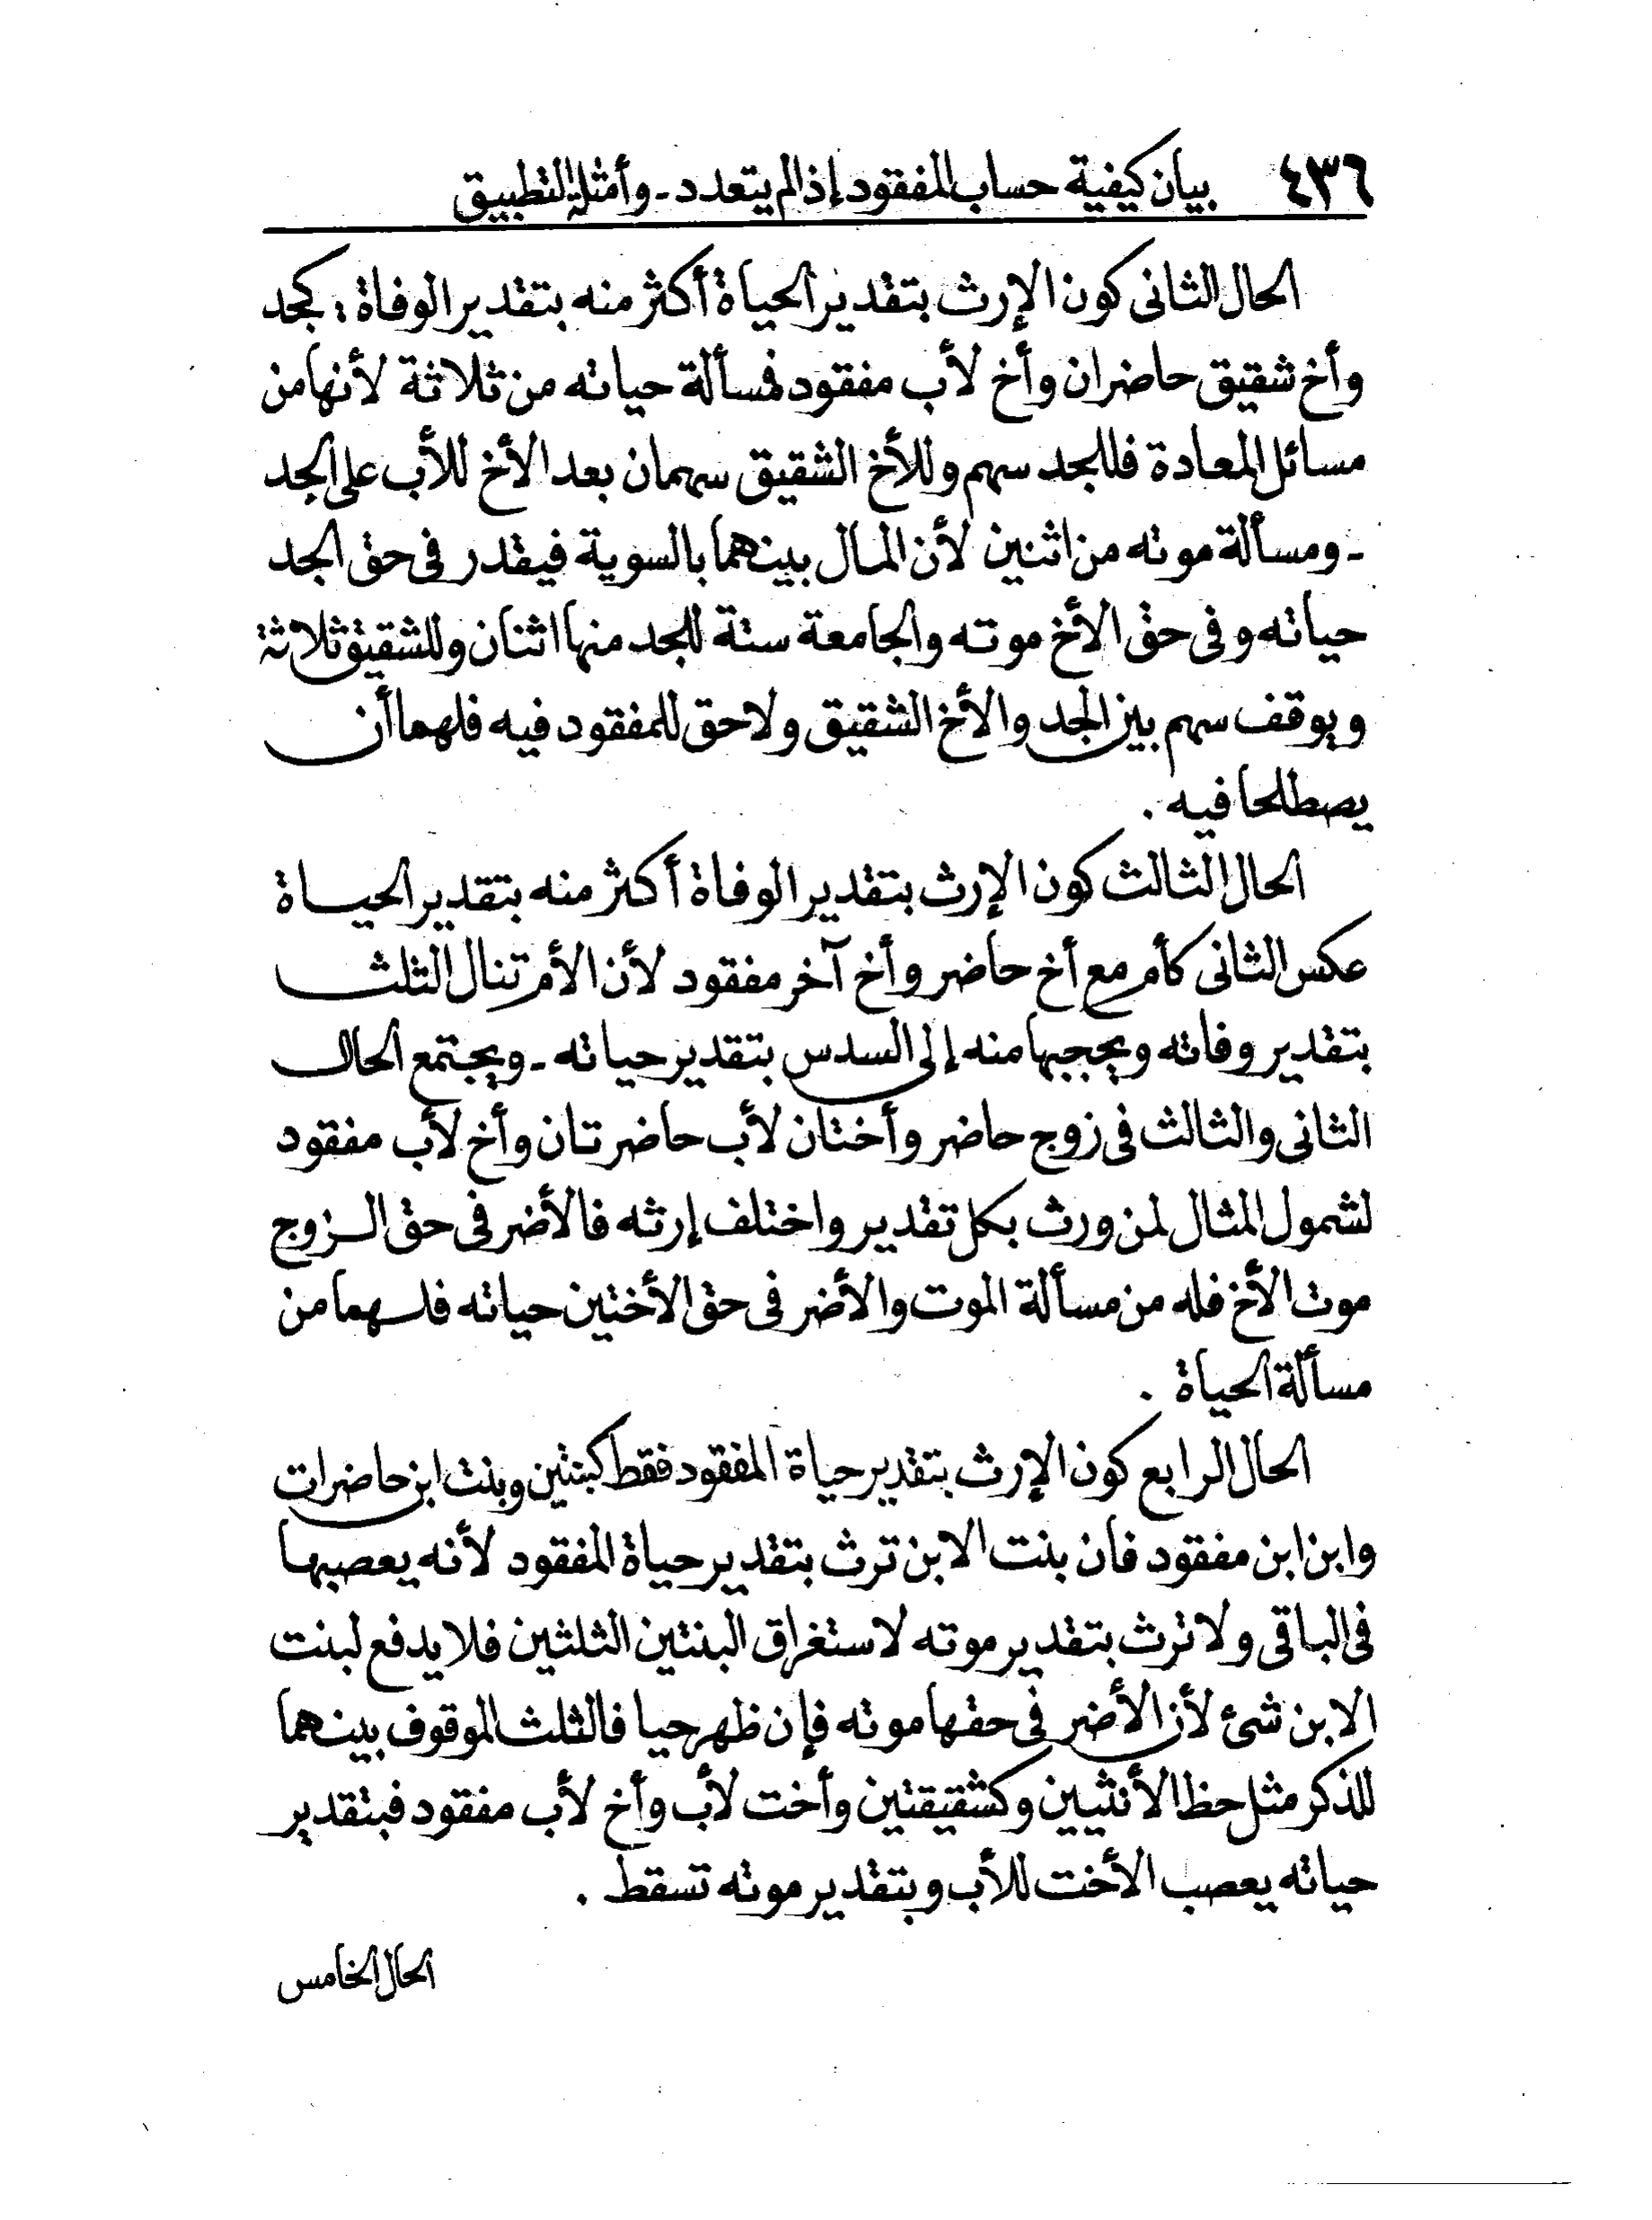 ٤٣٦ بيان كيفية حساب المفقود إذا لم يتعدد - وأمثلة التطبيق
الحال الثانى كون الإرث بتقدير الحياة أكثر منه بتقدير الوفاة : كجد
وأخ شقيق حاضران وأخ لأب مفقود فمسألة حياته من ثلاثة لأنها من
مسائل المعادة فللجد سهم وللأخ الشقيق سهمان بعد الأخ للأب على الجد
- ومسألة موته من اثنين لأن المال بينهما بالسوية فيقدر فى حق الجد
حياته وفى حق الأخ موته والجامعة ستة للجد منها اثنان وللشقيق ثلاثة
ويوقف سهم بين الجد والأخ الشقيق ولا حق للمفقود فيه فلهما أن
يصطلحا فيه .
الحال الثالث كون الإرث بتقدير الوفاة أكثر منه بتقدير الحياة
عكس الثانى كأم مع أخ حاضر وأخ آخر مفقود لأن الأم تنال الثلث
بتقدير وفاته ويحجبها منه إلى السدس بتقدير حياته - ويجتمع الحال
الثانى والثالث فى زوج حاضر وأختان لأب حاضرتان وأخ لأب مفقود
لشمول المثال لمن ورث بكل تقدير واختلف إرثه فالأضر فى حق الزوج
موت الأخ فله من مسألة الموت والأضر فى حق الأختين حياته فلهما من
مسألة الحياة .
الحال الرابع كون الإرث بتقدير حياة المفقود فقط كبنتين وبنت ابن حاضرات
وابن ابن مفقود فان بنت الابن ترث بتقدير حياة المفقود لأنه يعصبها
فى الباقى ولا ترث بتقدير موته لاستغراق البنتين الثلثين فلا يدفع لبنت
الابن شئ لأن الأضر فى حقها موته فإن ظهر حيا فالثلث الموقوف بينهما
للذكر مثل حظ الأنثيين وكشقيقتين وأخت لأب وأخ لأب مفقود فبتقدير
حياته يعصب الأخت للأب وبتقدير موته تسقط .
الحال الخامس